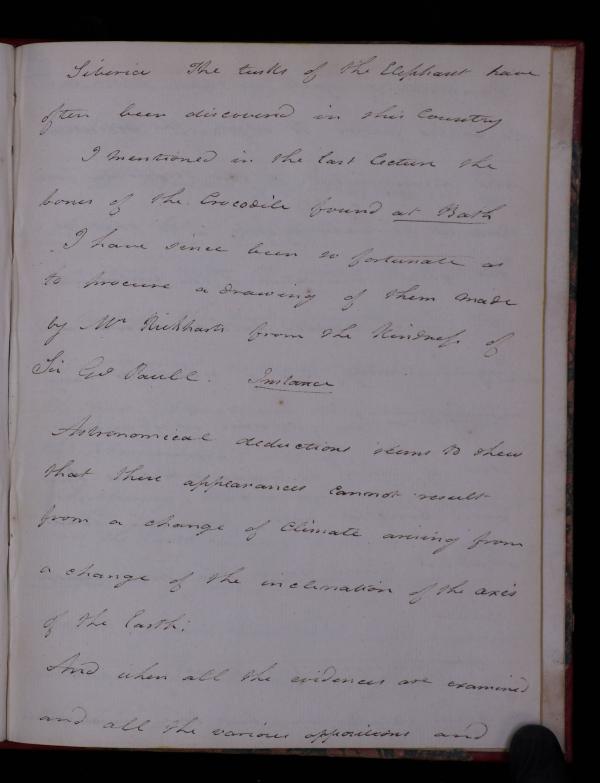 Siberia The tusks of the Elephant have
often been discovered in this Country
I mentioned in the last lecture the
bones of the Crocodile found at Bath
I have since been so fortunate as
to procure a drawing of them made
by Mr from the Kindness of
Sir
Instance
Astronomical deductions seems to shew
that these appearances cannot result
from a change of Climate arising from
a change of the inclination of the axis
of the Earth:
And when all the evidences are examined
and all the various oppositions and